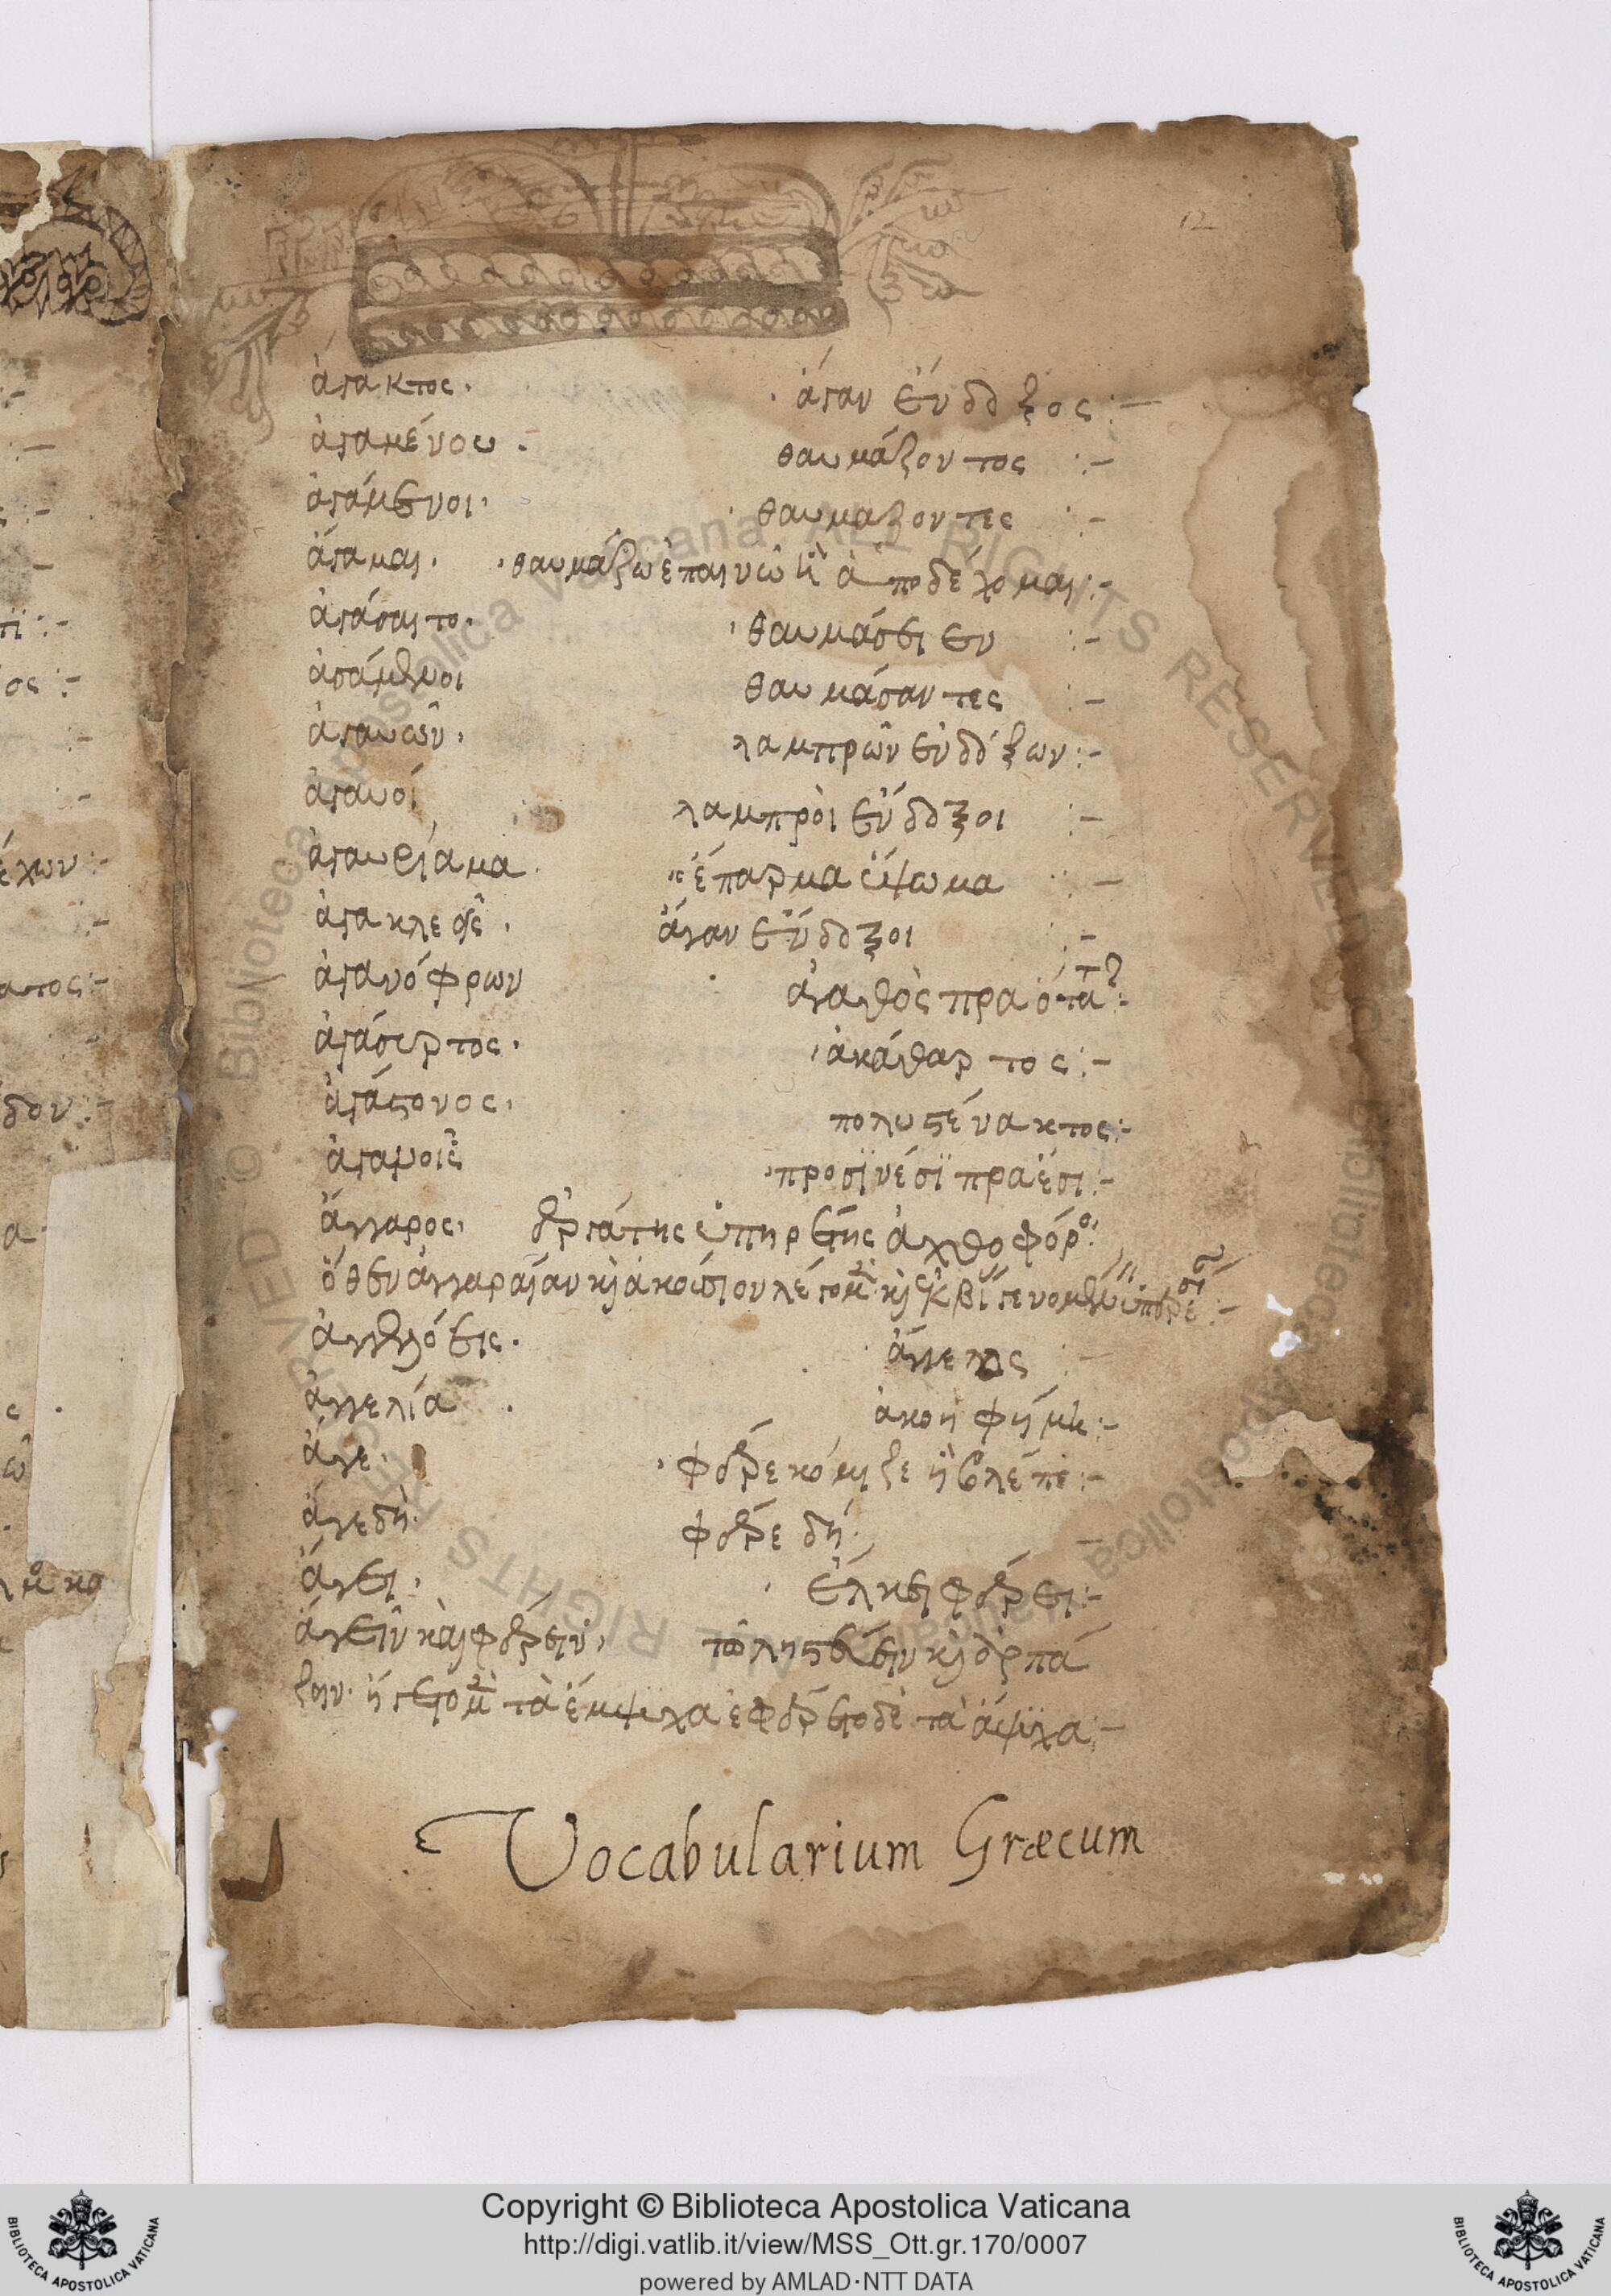 12
ἀγακτος· ἄγαν ἔνδοξος :–
ἀγαμένου · θαυμάζοντος :–
ἀγάμενοι · θαυμαζοντες :–
ἄγαμαι · θαυμάζω ἐπαινῶ ἢ ἀποδέχομαι :–
ἀγάσαιτο · θαυμάσειεν :–
ἀγάμενοι θαυμάσαντες :–
ἀγαυῶν · λαμπρῶν ἐνδόξων :–
ἀγαυοί λαμπρὸι ἔνδοξοι :–
ἀγαυρίαμα · ἔπαρμα ὕψωμα :–
ἀγακλεεῖς · ἄγαν ἔνδοξοι :–
ἀγανόφρων ἀγαθὸς πραότατος :–
ἀγάσυρτος · ἀκάθαρτος :–
ἀγάστονος · πολυστένακτος :–
ἀγανοῖς προσηνέσι πραέσι :–
ἄγγαρος · ἐργάτης ὑπηρέτης ἀχθοφόρος
ὅθεν ἀγγαρείαν
ἀγγελόεις · ἄγγελος :–
ἀγγελία · ἀκοὴ φήμη :–
ἄγε · φέρε κόμιζε ἢ βλέπε :–
ἄγεδὴ · φέρε δή · –
ἄγει · ἕλκει φέρει :–
ἄγειν καὶ φέρειν · τὸ ληστεύειν καὶ ἁρπά
ζειν · ἤγετο μὲν τὰ ἔμψυχα ἐφέρετο δὲ τὰ ἄψυχα :–
Vocabularium Græcum
Copyright © Biblioteca Apostolica Vaticana
http://digi.vatlib.it/view/MSS_Ott.gr.170/0007
powered by AMLAD·NTT DATA
BIBLIOTECA APOSTOLICA VATICANA
BIBLIOTECA APOSTOLICA VATICANA